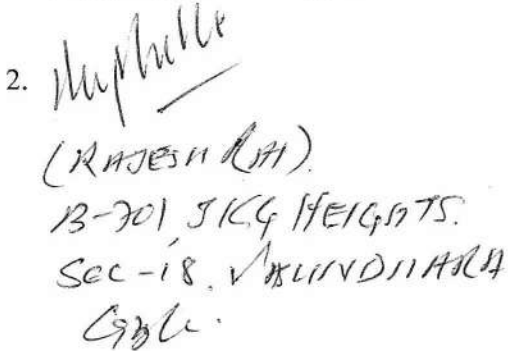 2.
(RAJESH RAI).
B-701, JKG HEIGHTS.
SEC-18, VASUNDHARA
GZB.